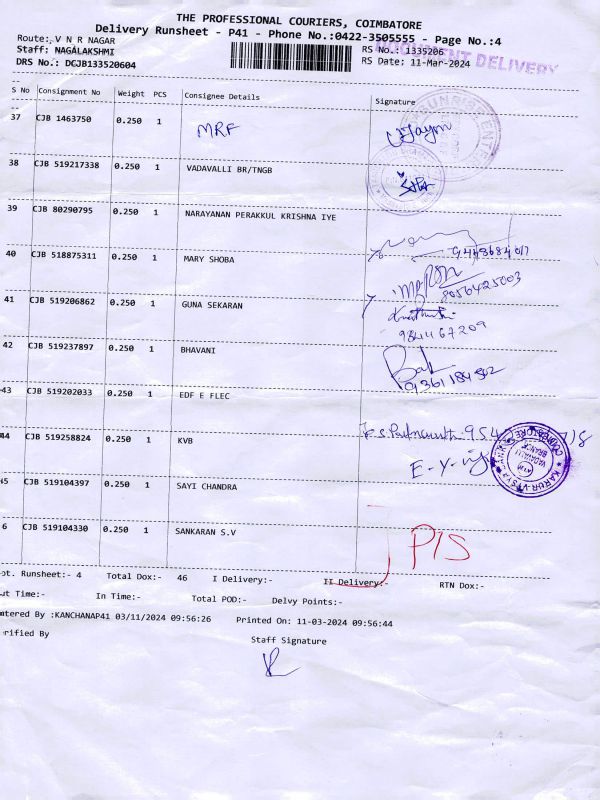 THE PROFESSIONAL COURIERS, COIMBATORE
Delivery Runsheet - P41 - Phone No.:0422-3505555 - Page No.:4
Route: V N R NAGAR
RS No.: 1335206
Staff: NAGALAKSHMI
RS Date: 11-Mar-2024
DELIVERY
DRS No.: DCJB133520604
S No Consignment No Weight PCS Consignee Details Signature
37 CJB 1463750 0.250 1 MRF
38 CJB 519217338 0.250 1 VADAVALLI BR/TNGB
39 CJB 80290795 0.250 1 NARAYANAN PERAKKUL KRISHNA IYE
40 CJB 518875311 0.250 1 MARY SHOBA
8056425003
41 CJB 519206862 0.250 1 GUNA SEKARAN
984467209
42 CJB 519237897 0.250 1 BHAVANI
43 CJB 519202033 0.250 1 EDF E FLEC
44 CJB 519258824 0.250 1 KVB
KARUR VYSYA BANK
VADAVALLI
BRANCH
COIMBATORE
45 CJB 519104397 0.250 1 SAYI CHANDRA
6 CJB 519104330 0.250 1 SANKARAN S.V
P15
ot. Runsheet:- 4 Total Dox:- 46 I Delivery:- II Delivery:- RTN Dox:-
ut Time:- In Time:- Total POD:- Delvy Points:-
ntered By :KANCHANAP41 03/11/2024 09:56:26 Printed On: 11-03-2024 09:56:44
erified By
Staff Signature